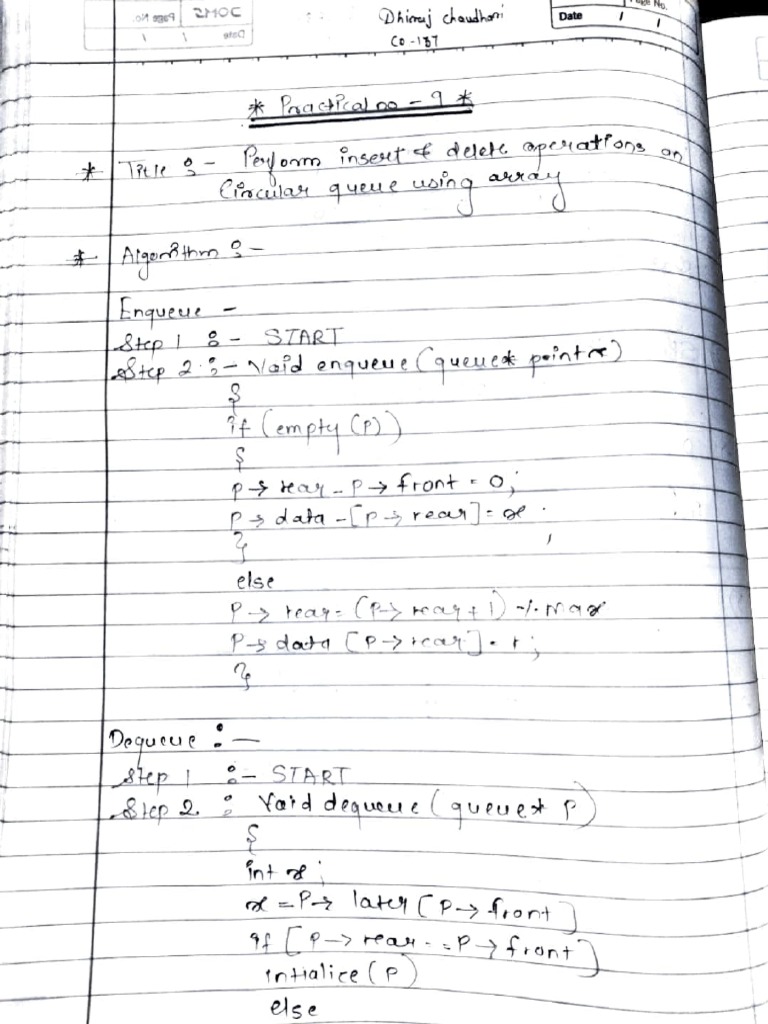 DOMS Page No.
Date / /
Dhiraj chaudhari
CO-187
Page No.
Date / /
* Practical no - 9 *
* Title :- Perform insert & delete operations on
Circular queue using array
* Algorithm :-
Enqueue -
Step 1 :- START
Step 2 :- Void enqueue (queue*
{
if (empty (P))
{
P → rear = P → front = 0;
P → data -[P → rear] = x
}
else
P → rear = (P → rear + 1) % max
P → data [P → rear] = r;
}
Dequeue :-
Step 1 :- START
Step 2 : Void dequeue (queue* P)
{
int x;
x = P → later [P → front]
if [P → rear == P → front]
intialice (P)
else